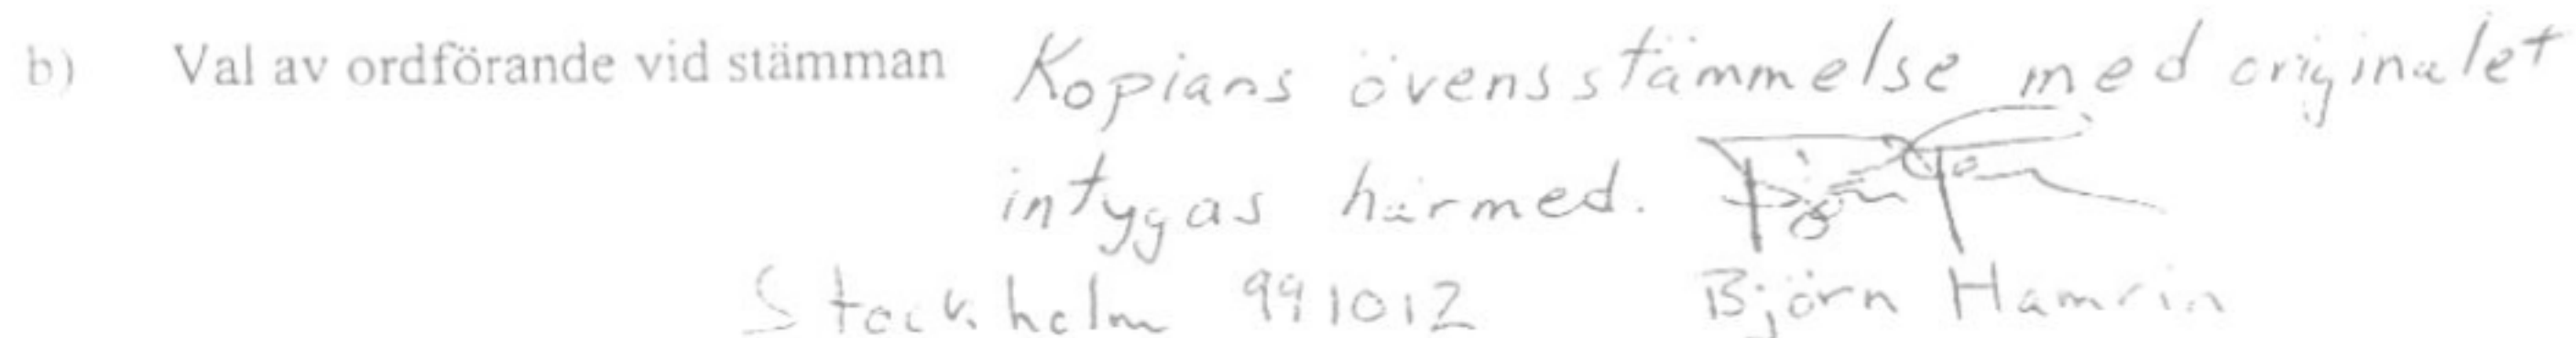 b) Val av ordförande vid stämman Kopians övensstämmelse med originalet
intygas härmed.
Stockholm 991012 Björn Hamrin